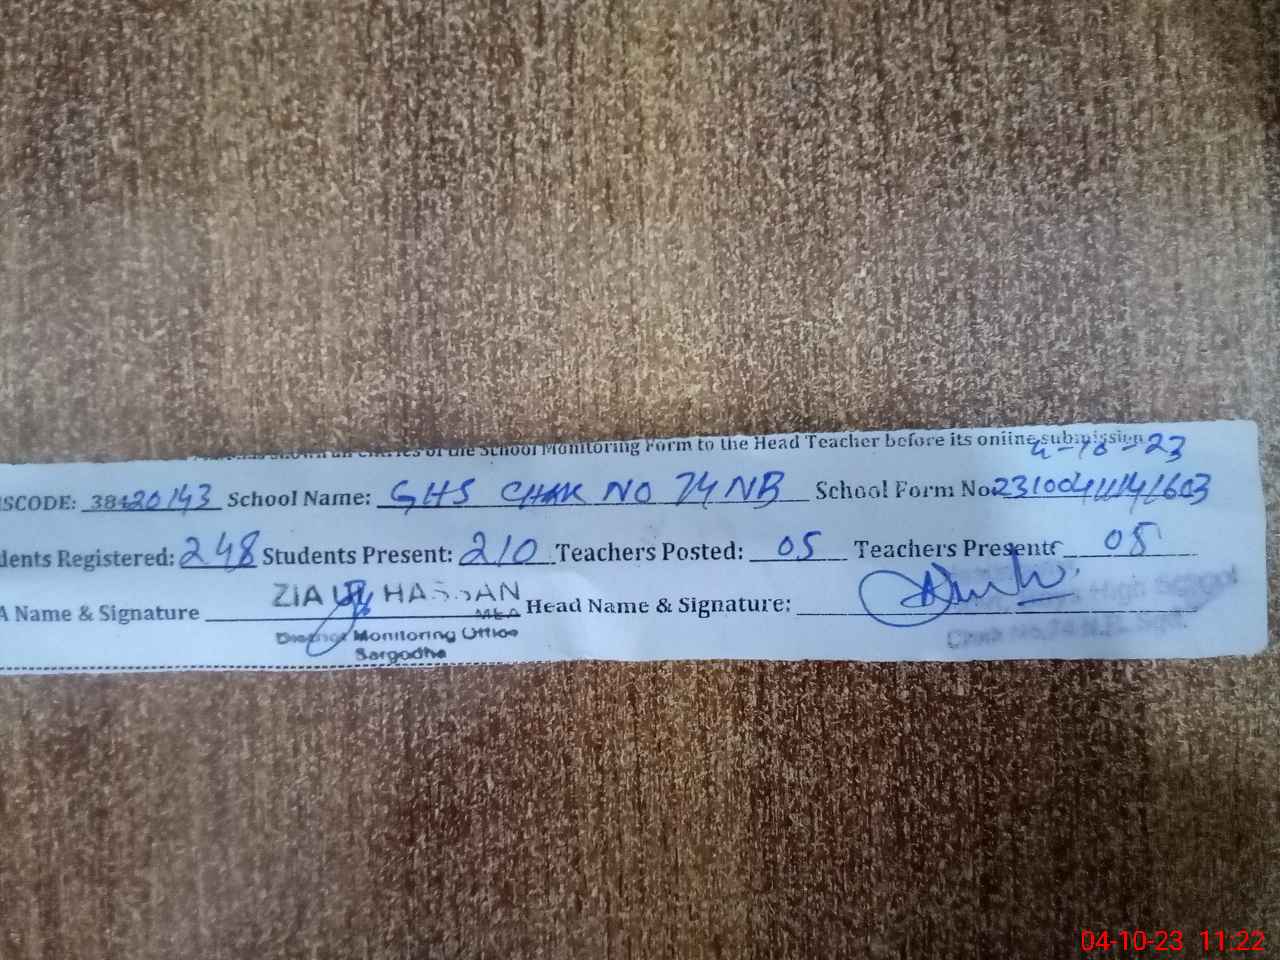 of the School Monitoring Form to the Head Teacher before its online submission
4-10-23
ISCODE: 38420143 School Name: GHS CHAK NO 74 NB School Form No. 231004111141603
dents Registered: 248 Students Present: 210 Teachers Posted: 05 Teachers Present: 05
A Name & Signature ZIA UL HASSAN MEA Head Name & Signature:
District Monitoring Office
Sargodha
High School
Chak No.74 N.B. Sgd.
04-10-23 11:22